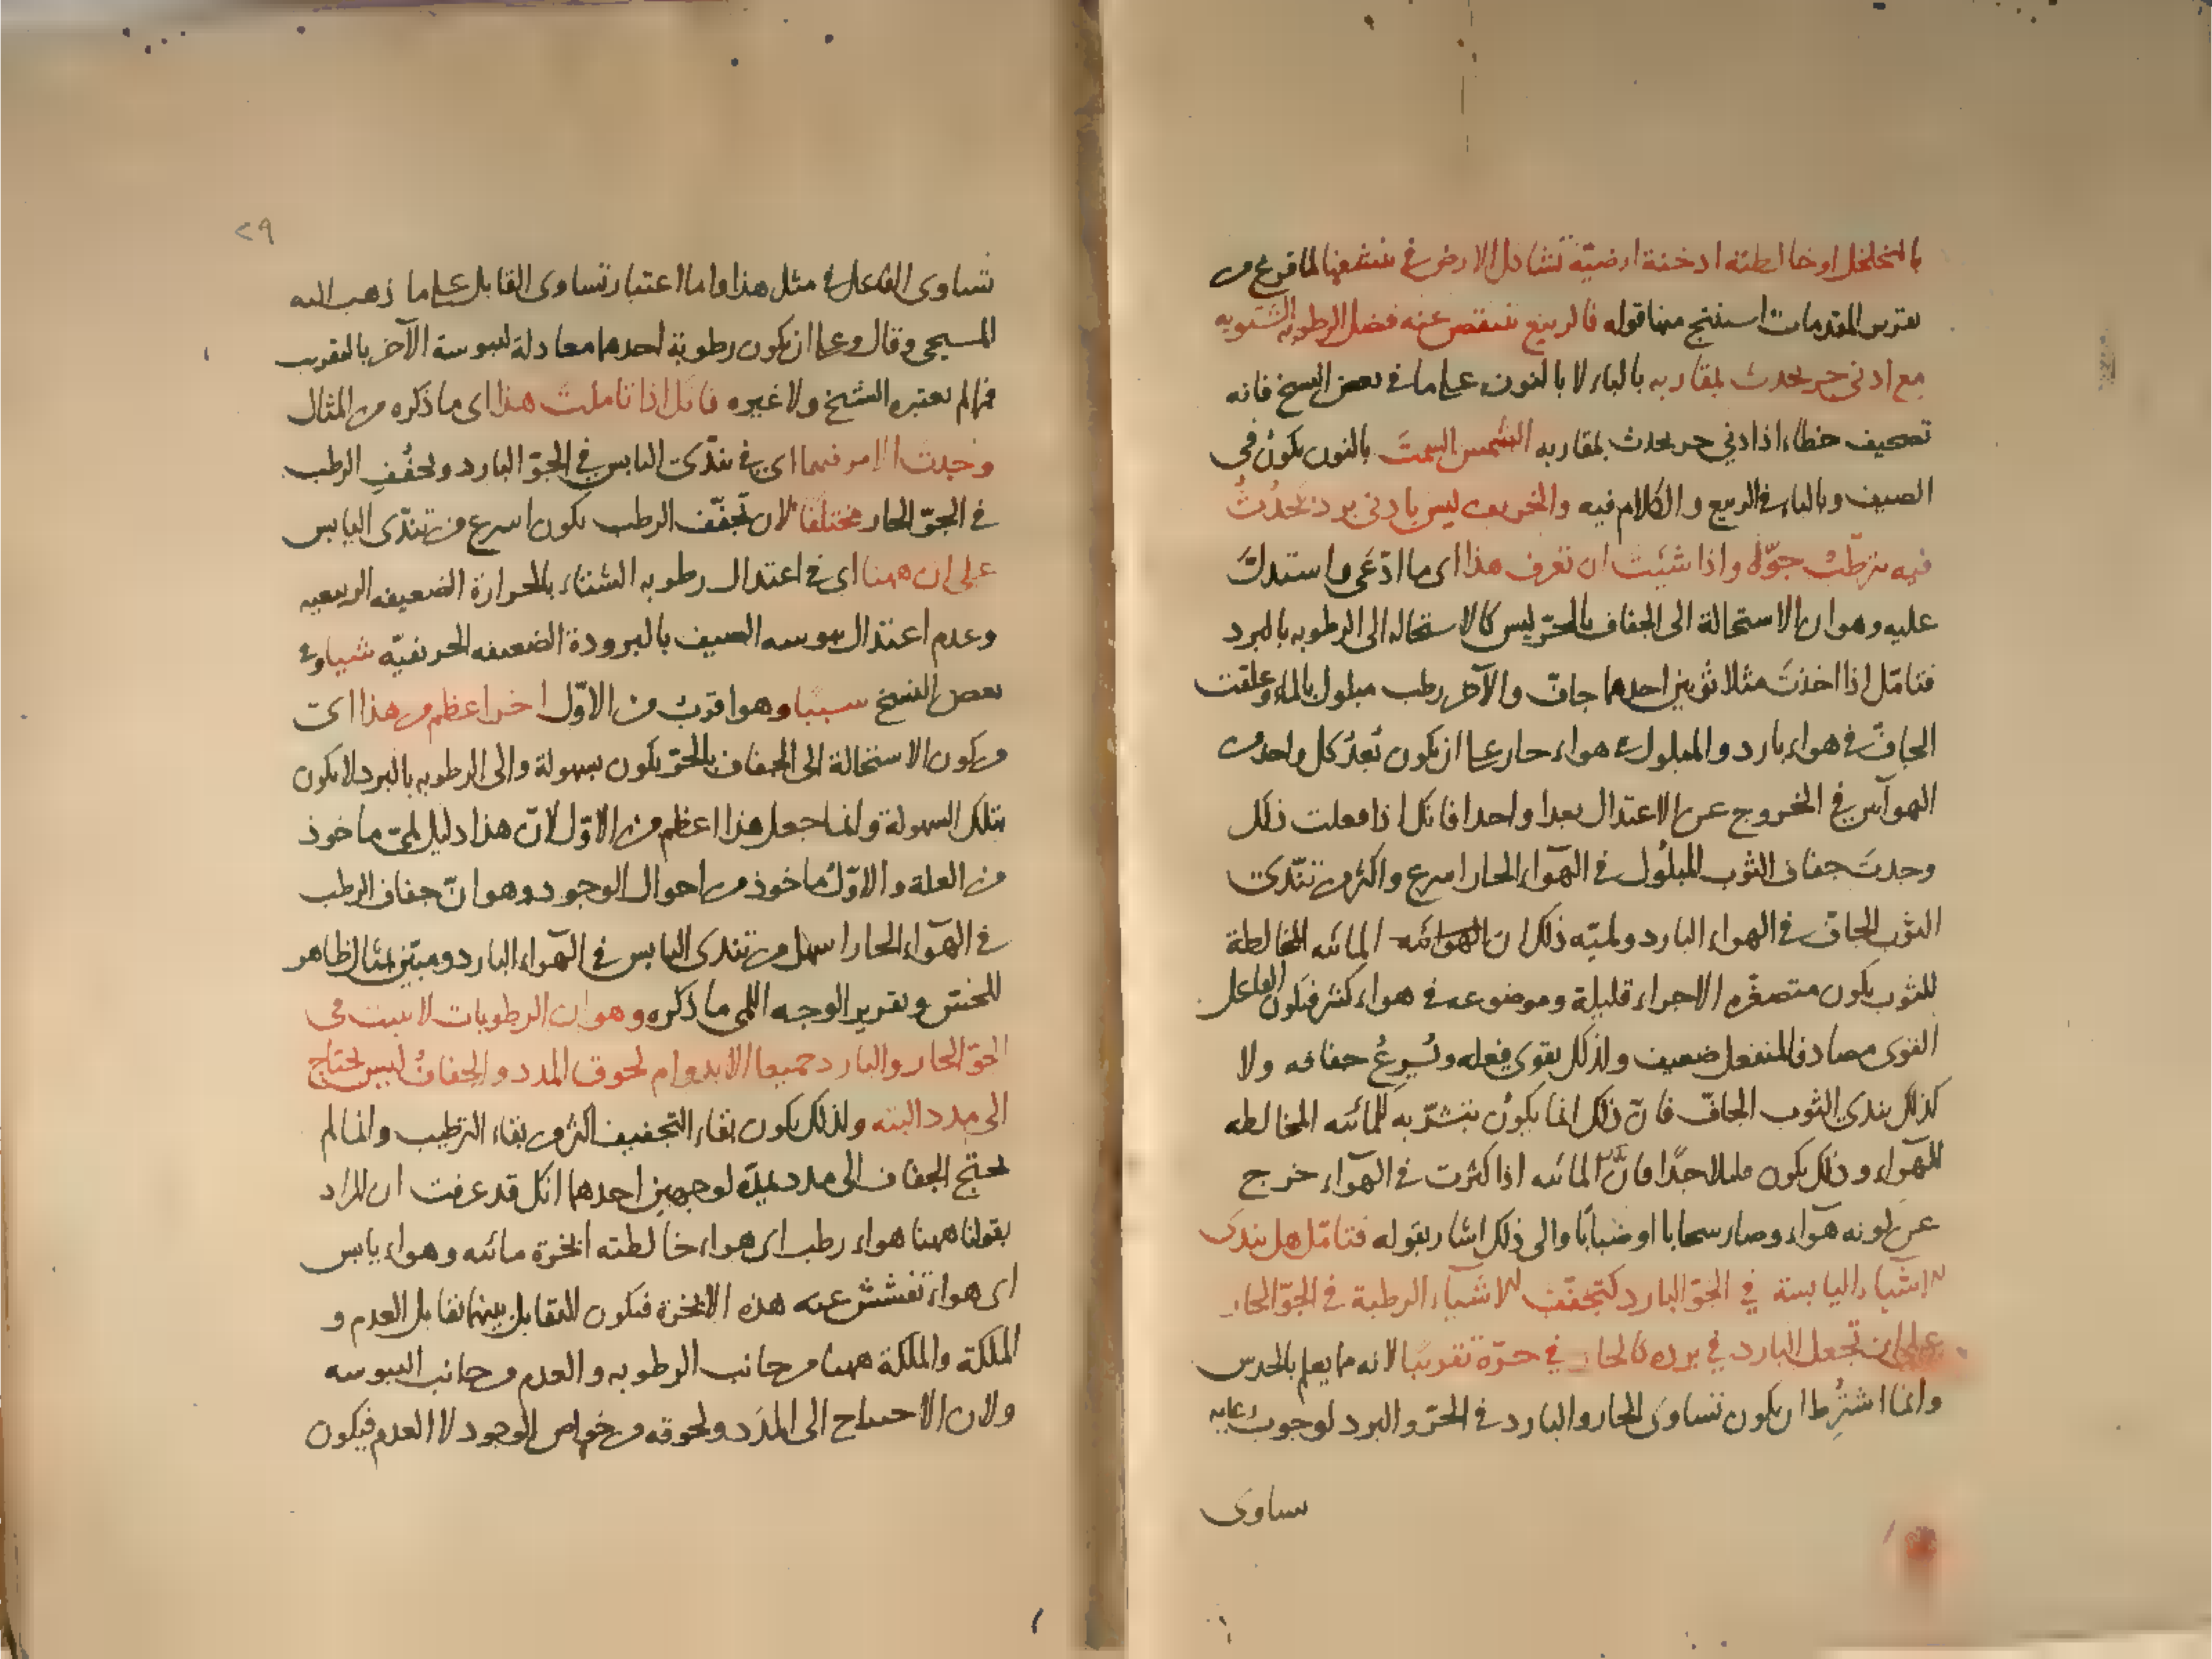 بالتخلخل او خالطته ادخنة ارضيّة تشاكل الارض في تنشفها لما فرغ من
تقرير المقدمات استنتج منها قوله فالربيع ينتقص عنه فضل الرطوبة الشتويه
مع ادنى حر يحدث لمقاربه بالباء لا بالنون على ما في بعض النسخ فانه
تصحيف خطاء اذ ادنى حر يحدث لمقاربه الشمس السمتَ بالنون يكون في
الصيف وبالباء في الربيع والكلام فيه والخريف ليس بادنى برد يحدُثُ
فيه يترطّب جوّه واذا شئت ان تعرف هذا اى ما ادّعى واستدلّ
عليه وهو ان الاستحالة الى الجفاف بالحرّ ليس كالاستحاله الى الرطوبه بالبرد
فتامّل اذا اخذتَ مثلا ثوبين احدهما جافّ والآخر رطب مبلول بالماء وعلقت
الجافّ في هواء بارد والمبلول في هواء حار على ان يكون بُعدُ كل واحد من
الهوآئين في الخروج عن الاعتدال بعدا واحدا فانك اذا فعلت ذلك
وجدتَ جفاف الثوب المبلُول في الهوآء الحار اسرع واكثر من تندّى
الثوب الجافّ في الهواء البارد ولميّه ذلك ان الهوائيه المائيه المخالطة
للثوب يكون متصغّرة الاجزاء قليلة وموضوعه في هواء كثير فيكون الفاعل
القوى مصادفا لمنفعل ضعيف ولذلك يقوى فعله ويُسرعُ جفافه ولا
كذلك يندى الثوب الجافّ فانّ ذلك انما يكون بتشرّبه للمائيه المخالطه
للهوآء وذلك يكون قليلا جدّا فانّ المائيه اذا كثرت في الهوآء خرج
عن كونه هوآء وصار سحابا او ضبابًا والى ذلك اشار بقوله فتامّل هل يندى
الاشياء اليابسة في الجوّ البارد كتجفّف الاشيآء الرطبة في الجوّ الحار
على ان تجعل البارد في برده كالحار في حرّه تقريبًا لانه مما يعلم بالحدس
وانما اشتُرِط ان يكون تساوى الحار والبارد في الحرّ والبرد لوجوب رعايه
تساوى
٢٩
تساوى الفاعل في مثل هذا واما اعتبار تساوى القابل على ما ذهب اليه
المسيحى وقال وعلى ان يكون رطوبة احدهما معادلة ليبوسة الآخر بالتقريب
فمما لم يعتبره الشيخ ولا غيره فانك اذا تاملت هذا اى ما ذكره من المثال
وجدت الامر فيهما اى في تندّى اليابس في الجوّ البارد وتجفّف الرطب
في الجوّ الحار مختلفا لان تجفّف الرطب يكون اسرع من تندّى اليابس
على ان ههنا اى في اعتدال رطوبه الشتاء بالحرارة الضعيفه الربيعيه
وعدم اعتدال يبوسه الصيف بالبرودة الضعيفه الخريفيّه شيئا وفي
بعض النسخ سببًا وهو اقرب من الاوّل اخر اعظم من هذا اى
من كون الاستحالة الى الجفاف بالحرّ يكون بسهولة والى الرطوبه بالبرد لا يكون
بتلك السهولة وانما جعل هذا اعظم من الاوّل لانّ هذا دليل لمّى ماخوذ
من العلة والاوّل ماخوذ من احوال الوجود وهو انّ جفاف الرطب
في الهوآء الحار اسهل من تندى اليابس في الهوآء البارد ومبيّن بمثال ظاهر
للحسّ وتقرير الوجه اللمى ما ذكره وهو ان الرطوبات لا تثبت في
الجوّ الحار والبارد جميعا الا بدوام لحوق المدد والجفافُ ليس يحتاج
الى مدد البته ولذلك يكون بقاء التجفيف اكثر من بقاء الترطيب وانما لم
يحتج الجفاف الى مدد يمدّه لوجهين احدهما انك قد عرفت ان المراد
بقولنا ههنا هواء رطب اى هواء خالطته ابخرة مائيه وهواء يابس
اى هواء تفشّش عنه هذه الابخرة فيكون التقابل بينهما تقابل العدم و
الملكة والملكة ههنا من جانب الرطوبه والعدم من جانب اليبوسه
ولان الاحتياج الى المدَد ولحوقه من خواص الوجود لا العدم فيكون